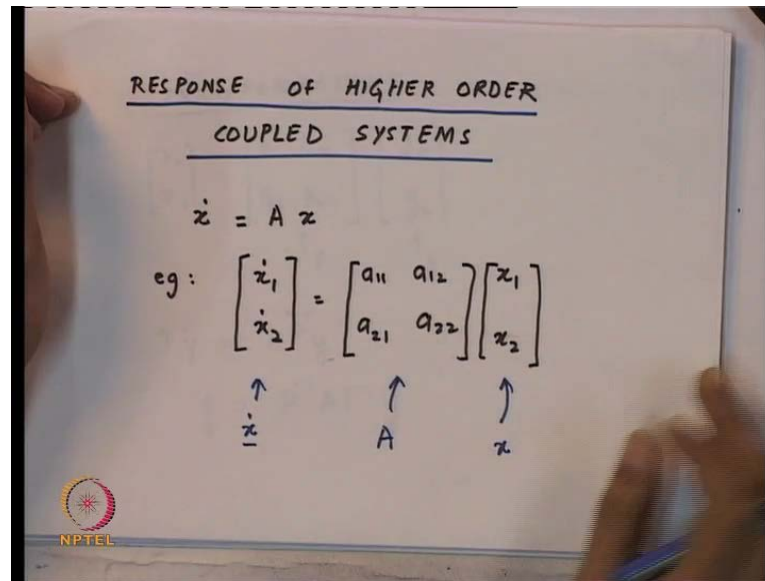 RESPONSE Of HIGHER ORDER
COUPLED SYSTEMS
ẋ = A x
eg : [ẋ₁ ẋ₂] = [a₁₁ a₁₂ a₂₁ a₂₂] [x₁ x₂]
↑ ↑ ↑
ẋ A x
NPTEL